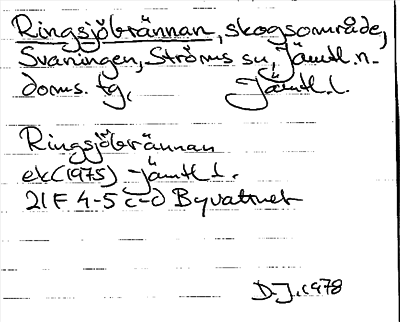 Ringsjöbrännan, skogsområde,
Svaningen, Ströms sn, Jämtl. n.
doms. tg, Jämtl. l.
Ringsjöbrännan
ek(1975) Jämtl. l.
21F 4-5 c-d Byvattnet
D.J. 1978